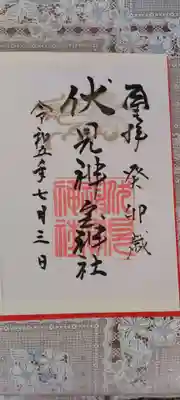 奉拝 癸卯歳
伏見神宝神社
令和五年七月三日